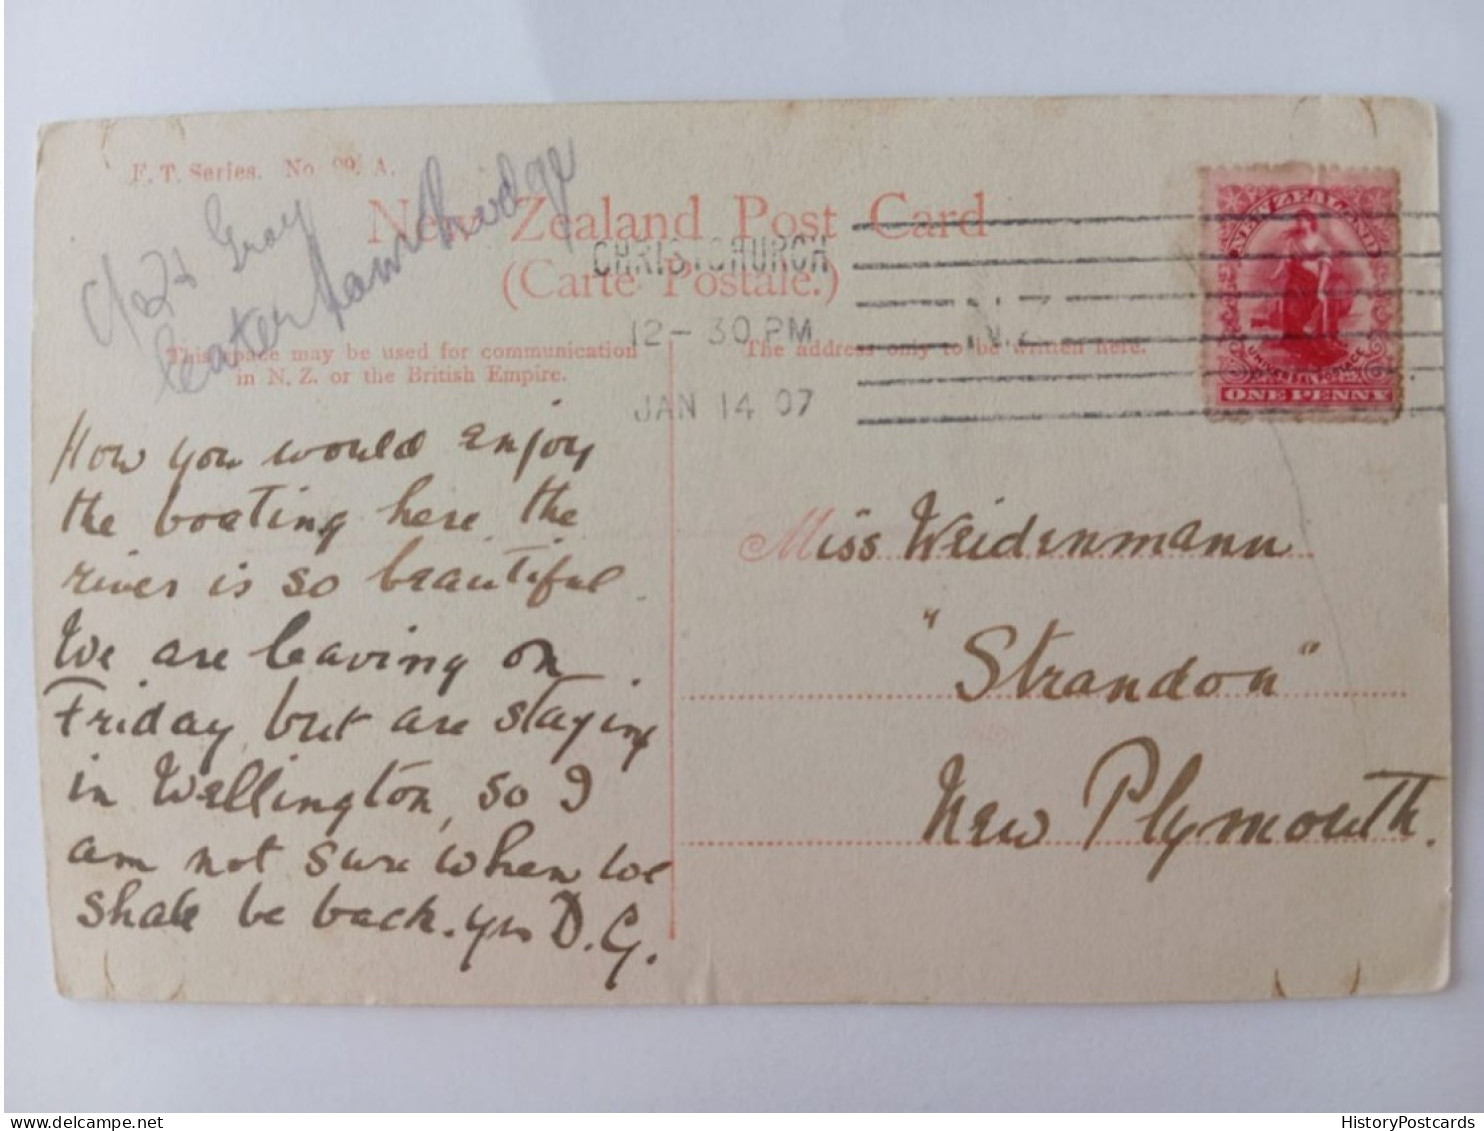 F. T. Series. No. 99. A.
New Zealand Post Card
(Carte Postale.)
CHRISTCHURCH
12-30 PM
JAN 14 07
N.Z.
NEW ZEALAND
UNIVERSAL POSTAGE
ONE PENNY
Gray
This space may be used for communication
in N. Z. or the British Empire.
The address only to be written here.
How you would enjoy
the boating here, the
river is so beautiful.
We are leaving on
Friday, but are staying
in Wellington, so I
am not sure when we
shall be back. yrs D.G.
Miss Weidenmann
"Strandon"
New Plymouth.
HistoryPostcards
delcampe.net